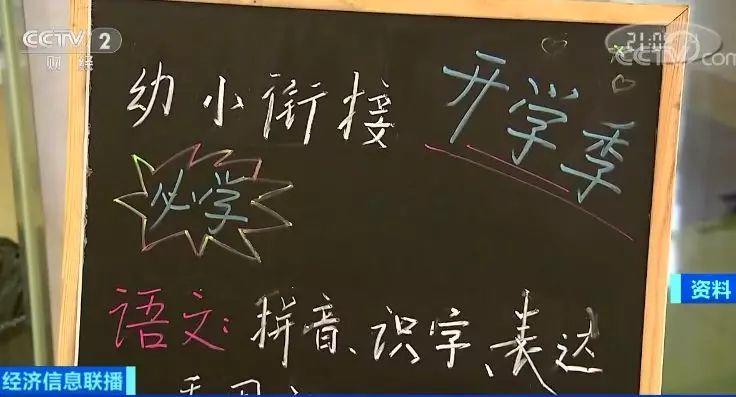 CCTV 2
财经
CCTV.com
幼小衔接 开学季
必学
语文:拼音、识字、表达
资料
经济信息联播